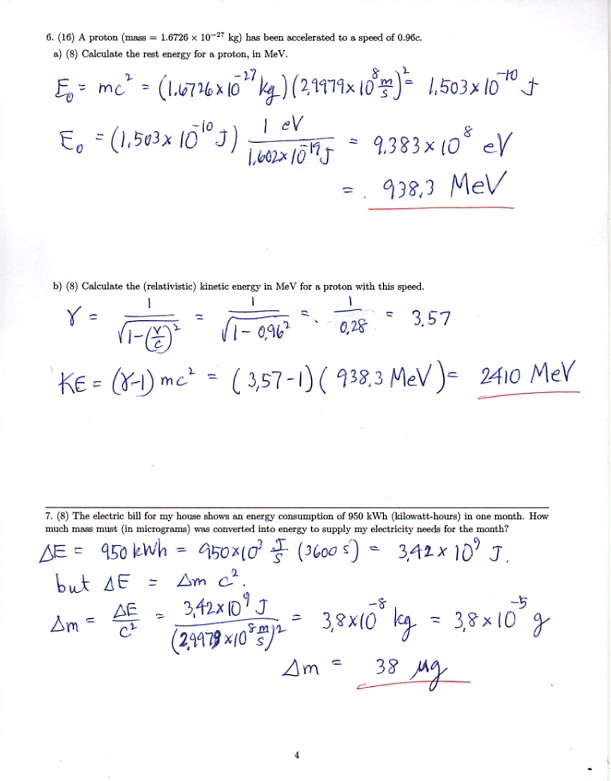 6. (16) A proton (mass = 1.6726 × 10⁻²⁷ kg) has been accelerated to a speed of 0.96c.
a) (8) Calculate the rest energy for a proton, in MeV.
E₀ = mc² = (1.6726×10⁻²⁷ kg)(2.9979×10⁸ m/s)² = 1.503×10⁻¹⁰ J
E₀ = (1.503×10⁻¹⁰ J) 1 eV / 1.602×10⁻¹⁹ J = 9.383×10⁸ eV
= 938.3 MeV
b) (8) Calculate the (relativistic) kinetic energy in MeV for a proton with this speed.
γ = 1/√(1-(v/c)²) = 1/√(1-0.96²) = 1/0.28 = 3.57
KE = (γ-1) mc² = (3.57-1)(938.3 MeV) = 2410 MeV
7. (8) The electric bill for my house shows an energy consumption of 950 kWh (kilowatt-hours) in one month. How
much mass must (in micrograms) was converted into energy to supply my electricity needs for the month?
ΔE = 950 kWh = 950×10³ J/s (3600 s) = 3.42×10⁹ J.
but ΔE = Δm c².
Δm = ΔE/c² = 3.42×10⁹ J / (2.9979×10⁸ m/s)² = 3.8×10⁻⁸ kg = 3.8×10⁻⁵ g
Δm = 38 μg
4